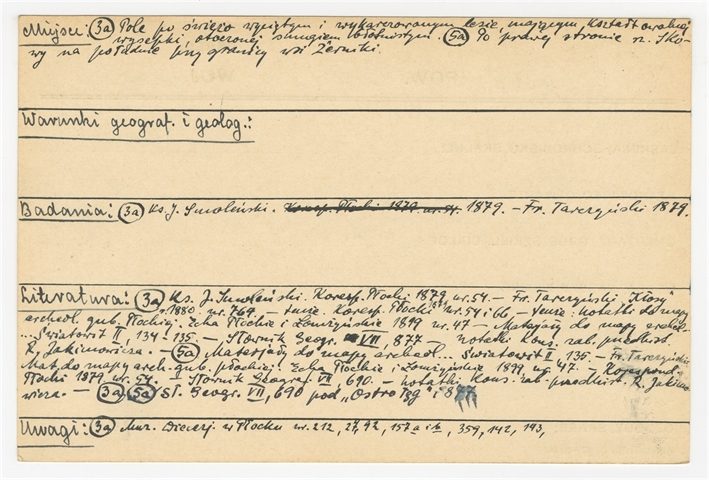 Miejsce: (3a) Pole po świeżo wyciętym i wykarczowanym lesie, mającym kształt owalnej
wysepki, otoczonej smugiem błotnistym. (5a) Po prawej stronie rz. Skrwy
na południe przy granicy wsi Żerniki.
Warunki geograf. i geolog.:
Badania: (3a) Ks. J. Smoleński. Koresp. Płocki 1879 nr. 54. 1879. – Fr. Tarczyński 1879.
Literatura: (3a) Ks. J. Smoleński. Koresp. Płocki 1879 nr. 54. – Fr. Tarczyński "Kłosy"
r. 1880. nr. 769. – tenże. Koresp. Płocki 1879 nr. 54 i 66, – tenże: notatki do mapy
archeol. gub. Płockiej. Echa Płockie i Łomżyńskie 1899 nr. 47 – Materjały do mapy archeol.
... Światowit II, 134-135. – Słownik Geogr. VII, 877 – notatki Kons. zab. przedhist.
R. Jakimowicza. – (5a) Materjały do mapy archeol... Światowit II, 135. – Fr. Tarczyński
Mat. do mapy arch. gub. płockiej. Echa Płockie i Łomżyńskie 1899. nr. 47. – Korespond.
Płocki 1879 nr. 54. – Słownik Geograf. VII, 690. – notatki Kons. zab. przedhist. R. Jakimo
wicza. – (3a) (5a) Sł. Geogr. VII, 690 pod "Ostrołęg" i 877
Uwagi: (3a) Muz. Diecezj. w Płocku nr. 212, 27, 92, 157 a i b, 359, 142, 193,